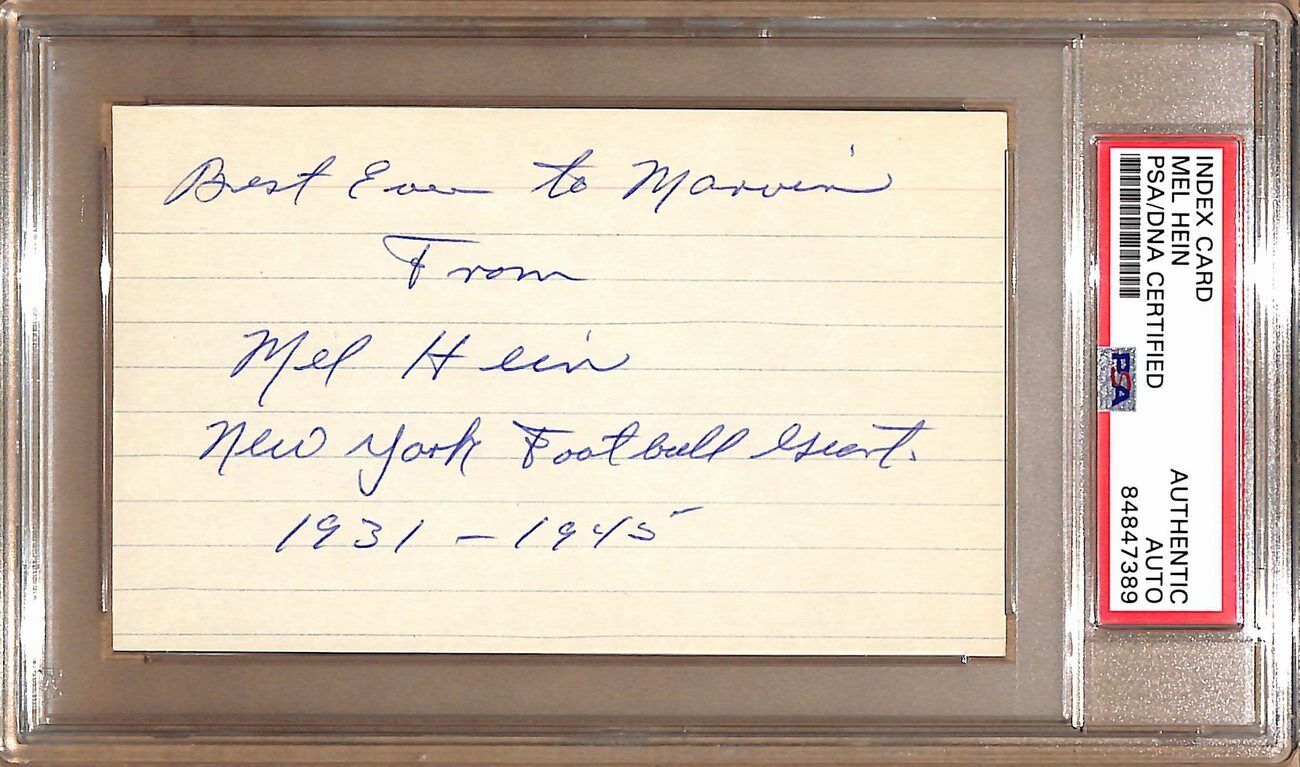 Best Ever to Marvin
From
Mel Hein
New York Football Giants
1931 - 1945
INDEX CARD
MEL HEIN
PSA/DNA CERTIFIED
AUTHENTIC
AUTO
84847389
PSA